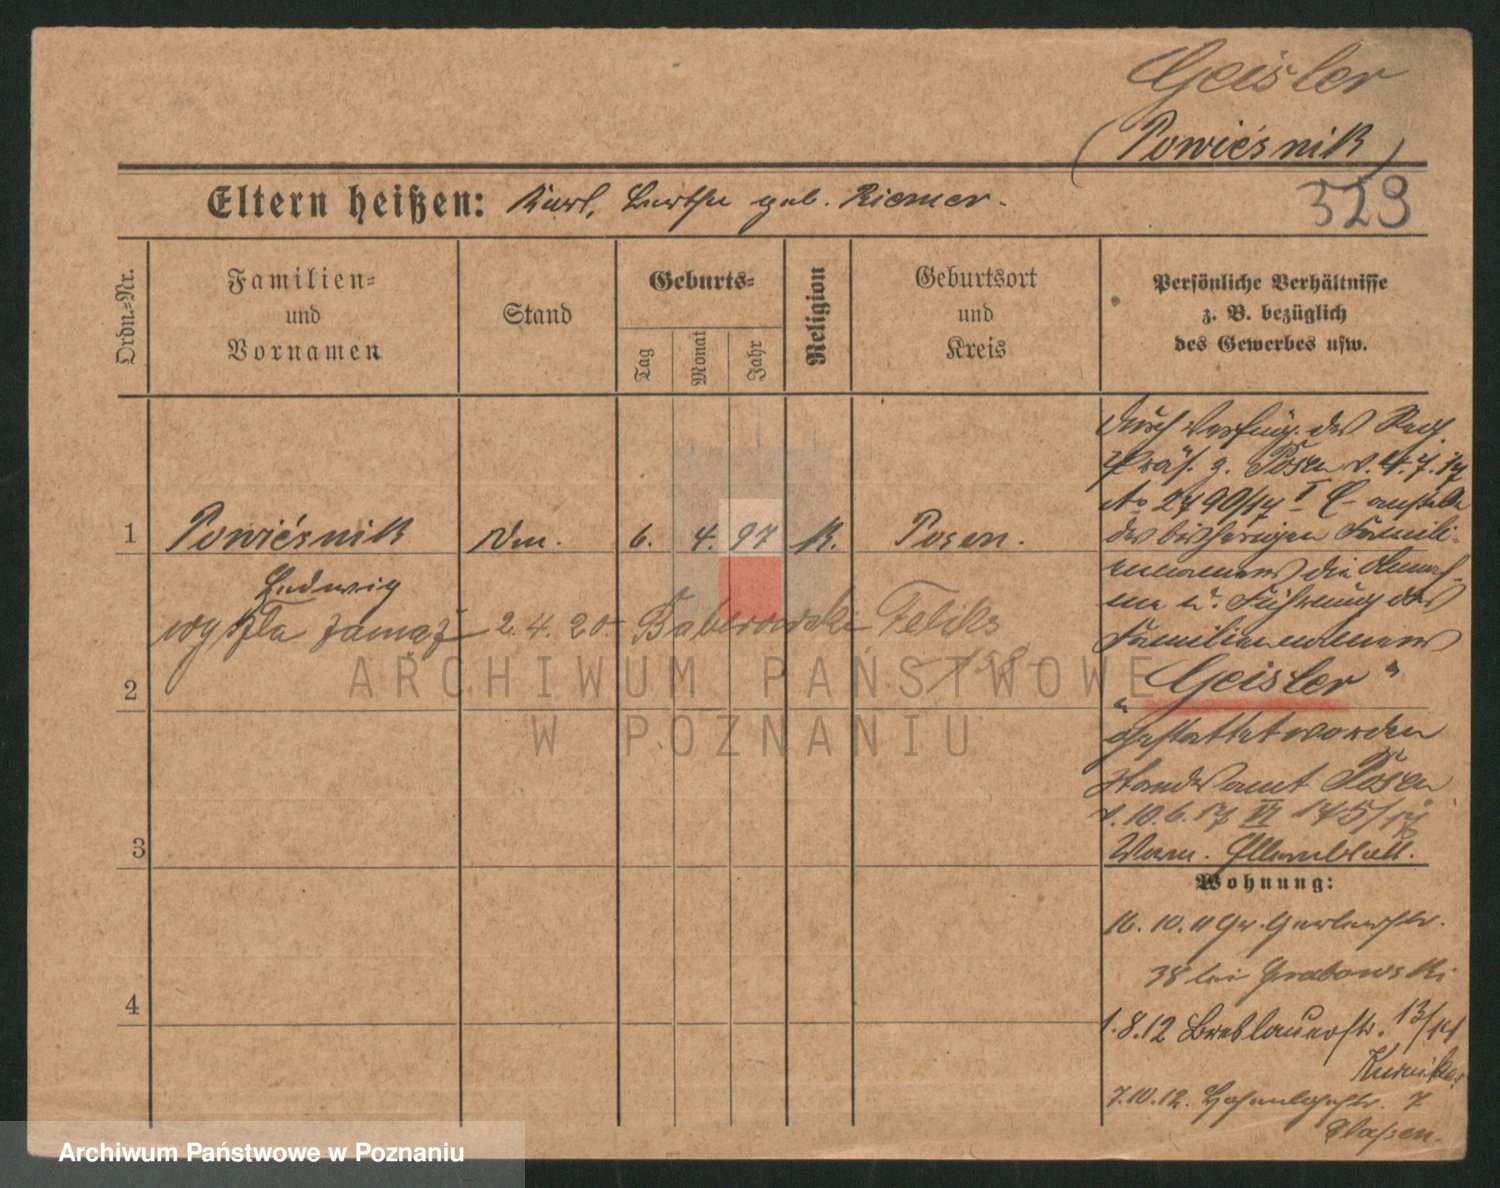 Geisler
(Powiésnik)
Eltern heißen: Karl, Bertha geb. Riemer.
329
Ordn.-Nr.
Familien-
und
Vornamen
Stand
Geburts-
Tag
Monat
Jahr
Religion
Geburtsort
und
Kreis
Persönliche Verhältnisse
z. B. bezüglich
des Gewerbes usw.
1 Powiésnik 6. 4. 97 K. Posen.
Ludwig
wyszła zamąż 2.4.20 Baberowski Feliks
2
3
4
durch Verfüg. des Reg.
Präs. z. Posen v. 4.7.17
No 2790/17 I C anstelle
des bisherigen Famili-
ennamens die Annah-
me u. Führung des
Familiennamens
„Geisler“
gestattet worden
Standesamt Posen
v. 10.6.17 VI 145/17
Elternblatt.
Wohnung:
16.10.11 Gr. Gerberstr.
38 bei Grabowski
1.8.12 Breslauerstr. 13/14
7.10.12. 7
ARCHIWUM PAŃSTWOWE
W POZNANIU
Archiwum Państwowe w Poznaniu